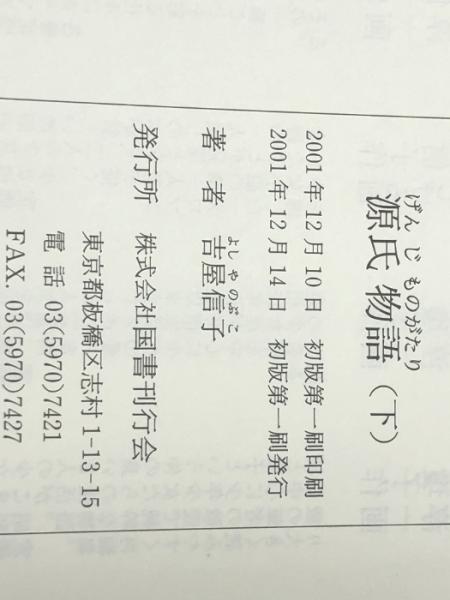 げんじ ものがたり
源氏物語（下）
2001年12月10日 初版第一刷印刷
2001年12月14日 初版第一刷発行
よしやのぶこ
著者 吉屋信子
発行所 株式会社国書刊行会
東京都板橋区志村1-13-15
電話 03(5970)7421
FAX. 03(5970)7427